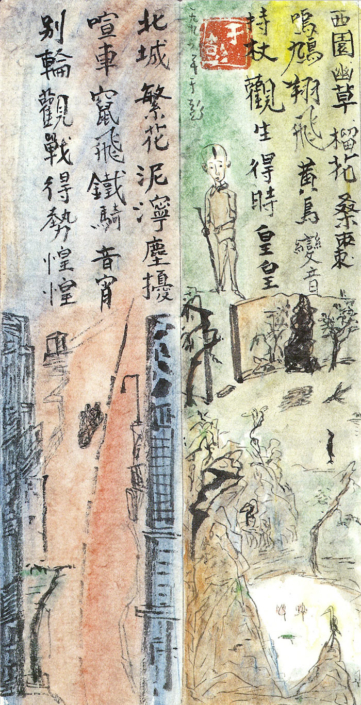 西園幽草 榴花 桑棗
鳴鳩翔飛 黃鳥變音
持杖觀生 得時皇皇
北城 繁花 泥濘塵擾
喧車竄飛 鐵騎音宵
別輪觀戰 得勢惶惶